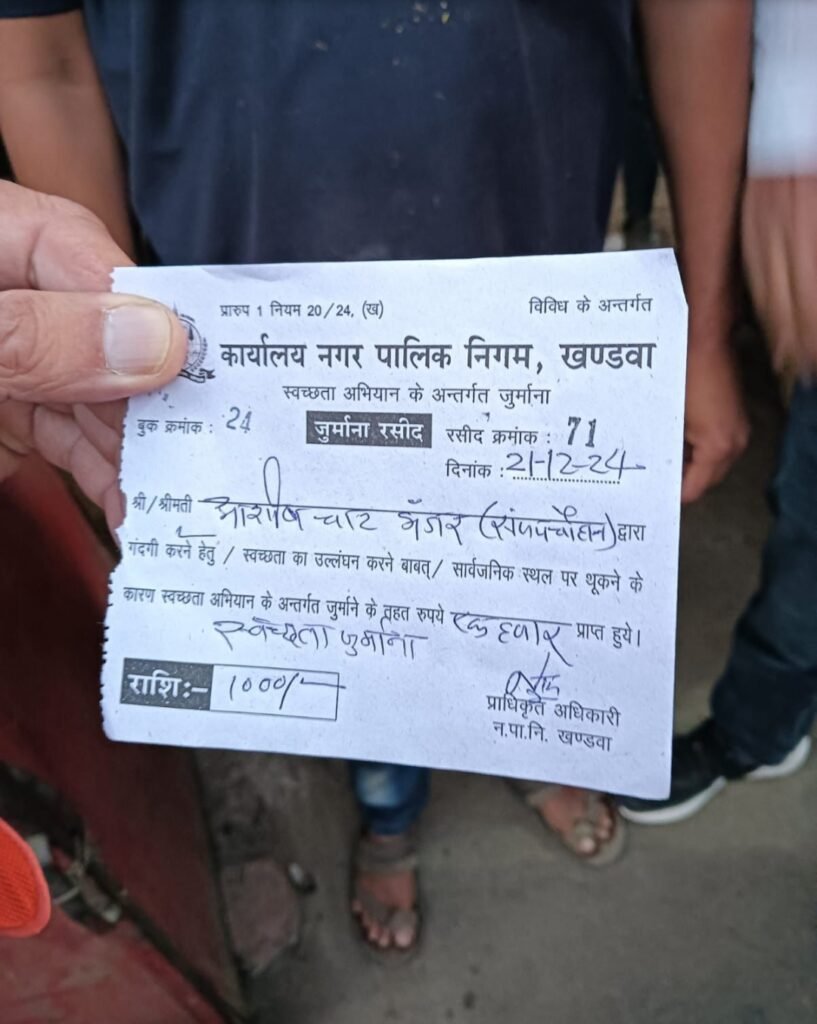 प्रारुप 1 नियम 20/24, (ख) विविध के अन्तर्गत
कार्यालय नगर पालिक निगम, खण्डवा
स्वच्छता अभियान के अन्तर्गत जुर्माना
बुक क्रमांक : 24 जुर्माना रसीद रसीद क्रमांक : 71
दिनांक : 21-12-24
श्री/श्रीमती आशीष चाट भँडार द्वारा
गंदगी करने हेतु / स्वच्छता का उल्लंघन करने बाबत्/ सार्वजनिक स्थल पर थूकने के
कारण स्वच्छता अभियान के अन्तर्गत जुर्माने के तहत रुपये एक हजार प्राप्त हुये।
स्वच्छता जुर्माना
राशि :- 1000/-
प्राधिकृत अधिकारी
न.पा.नि. खण्डवा